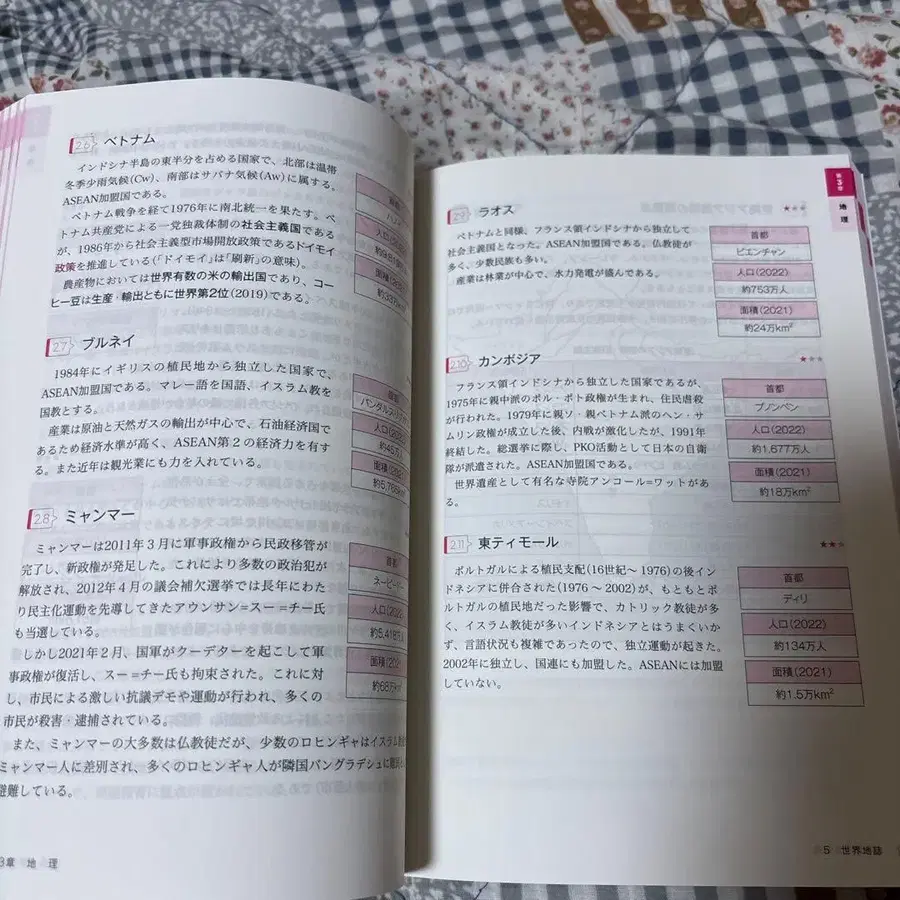 2.6 ベトナム
インドシナ半島の東半分を占める国家で、北部は温帯
冬季少雨気候(Cw)、南部はサバナ気候(Aw)に属する。
ASEAN加盟国である。
ベトナム戦争を経て1976年に南北統一を果たす。ベ
トナム共産党による一党独裁体制の社会主義国である
が、1986年から社会主義型市場開放政策であるドイモイ
政策を推進している(「ドイモイ」は「刷新」の意味)。
農産物においては世界有数の米の輸出国であり、コー
ヒー豆は生産・輸出ともに世界第2位(2019)である。
首都
ハノ
2.7 ブルネイ
1984年にイギリスの植民地から独立した国家で、
ASEAN加盟国である。マレー語を国語、イスラム教を
国教とする。
産業は原油と天然ガスの輸出が中心で、石油経済国で
あるため経済水準が高く、ASEAN第2の経済力を有す
る。また近年は観光業にも力を入れている。
首都
バンダルスリブ
人口(2022
約45万人
面積(2021
約5,765km
2.8 ミャンマー
ミャンマーは2011年3月に軍事政権から民政移管が
完了し、新政権が発足した。これにより多数の政治犯が
解放され、2012年4月の議会補欠選挙では長年にわた
り民主化運動を先導してきたアウンサン=スー=チー氏
も当選している。
しかし2021年2月、国軍がクーデターを起こして軍
事政権が復活し、スー=チー氏も拘束された。これに対
し、市民による激しい抗議デモや運動が行われ、多くの
市民が殺害・逮捕されている。
また、ミャンマーの大多数は仏教徒だが、少数のロヒンギャはイスラム教
ミャンマー人に差別され、多くのロヒンギャ人が隣国バングラデシュに
避難している。
首都
ネーピードー
人口(2022
約5,418万
面積(2021
約68万k
3章 地 理
第3章
地理
2.9 ラオス ★★★
ベトナムと同様、フランス領インドシナから独立して
社会主義国となった。ASEAN加盟国である。仏教徒が
多く、少数民族も多い。
産業は林業が中心で、水力発電が盛んである。
首都
ビエンチャン
人口(2022)
約753万人
面積(2021)
約24万km²
2.10 カンボジア ★★★
フランス領インドシナから独立した国家であるが、
1975年に親中派のポル・ポト政権が生まれ、住民虐殺
が行われた。1979年に親ソ・親ベトナム派のヘン・サ
ムリン政権が成立した後、内戦が激化したが、1991年
終結した。総選挙に際し、PKO活動として日本の自衛
隊が派遣された。ASEAN加盟国である。
世界遺産として有名な寺院アンコール=ワットがあ
る。
首都
プノンペン
人口(2022)
約1,677万人
面積(2021)
約18万km²
2.11 東ティモール ★★★
ポルトガルによる植民支配(16世紀〜1976)の後イン
ドネシアに併合された(1976〜2002)が、もともとポ
ルトガルの植民地だった影響で、カトリック教徒が多
く、イスラム教徒が多いインドネシアとはうまくいか
ず、言語状況も複雑であったので、独立運動が起きた。
2002年に独立し、国連にも加盟した。ASEANには加盟
していない。
首都
ディリ
人口(2022)
約134万人
面積(2021)
約1.5万km²
5 世界地誌